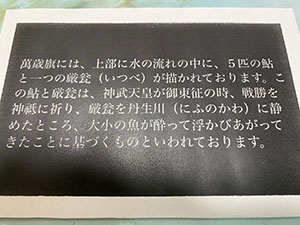 萬歳旗には、上部に水の流れの中に、5匹の鮎
と一つの厳瓮（いつべ）が描かれております。こ
の鮎と厳瓮は、神武天皇が御東征の時、戦勝を
神祇に祈り、厳瓮を丹生川（にふのかわ）に静
めたところ、大小の魚が酔って浮かびあがって
きたことに基づくものといわれております。